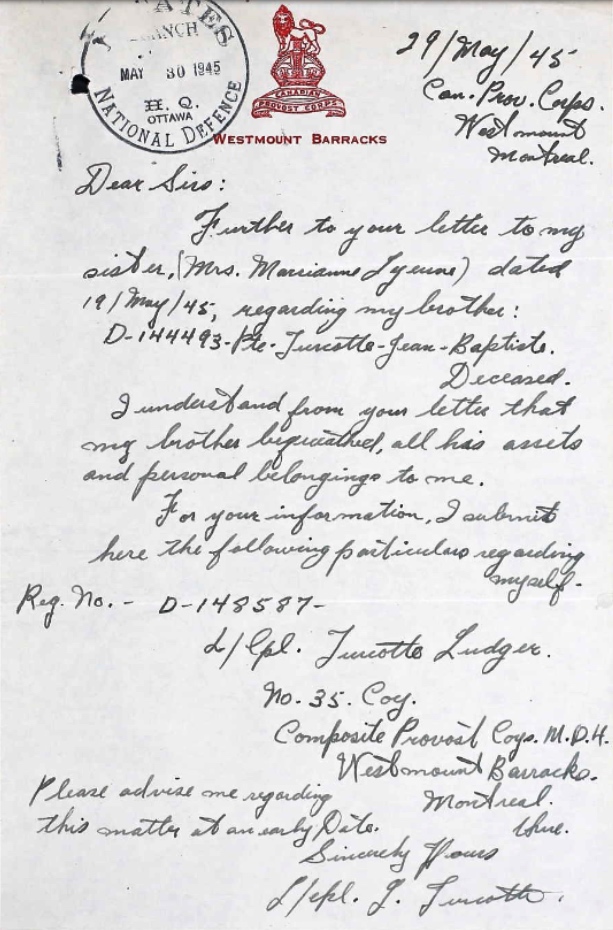 ESTATES
BRANCH
MAY 30 1945
H. Q.
OTTAWA
NATIONAL DEFENCE
CANADIAN
PROVOST CORPS
WESTMOUNT BARRACKS
29/May/45
Can. Prov. Corps.
Westmount
Montreal.
Dear Sirs:
Further to your letter to my
sister, (Mrs. Marrianne) dated
19/May/45, regarding my brother:
D-144493-Pte. Turcotte-Jean-Baptiste.
Deceased.
I understand from your letter that
my brother bequeathed, all his assets
and personal belongings to me.
For your information, I submit
here the following particulars regarding
myself-
Reg. No. - D-148587-
L/Cpl. Turcotte Ludger.
No. 35. Coy.
Composite Provost Coys. M.D.4.
Westmount Barracks.
Montreal.
Please advise me regarding
this matter at an early Date.
Sincerely Yours
L/cpl. L. Turcotte.